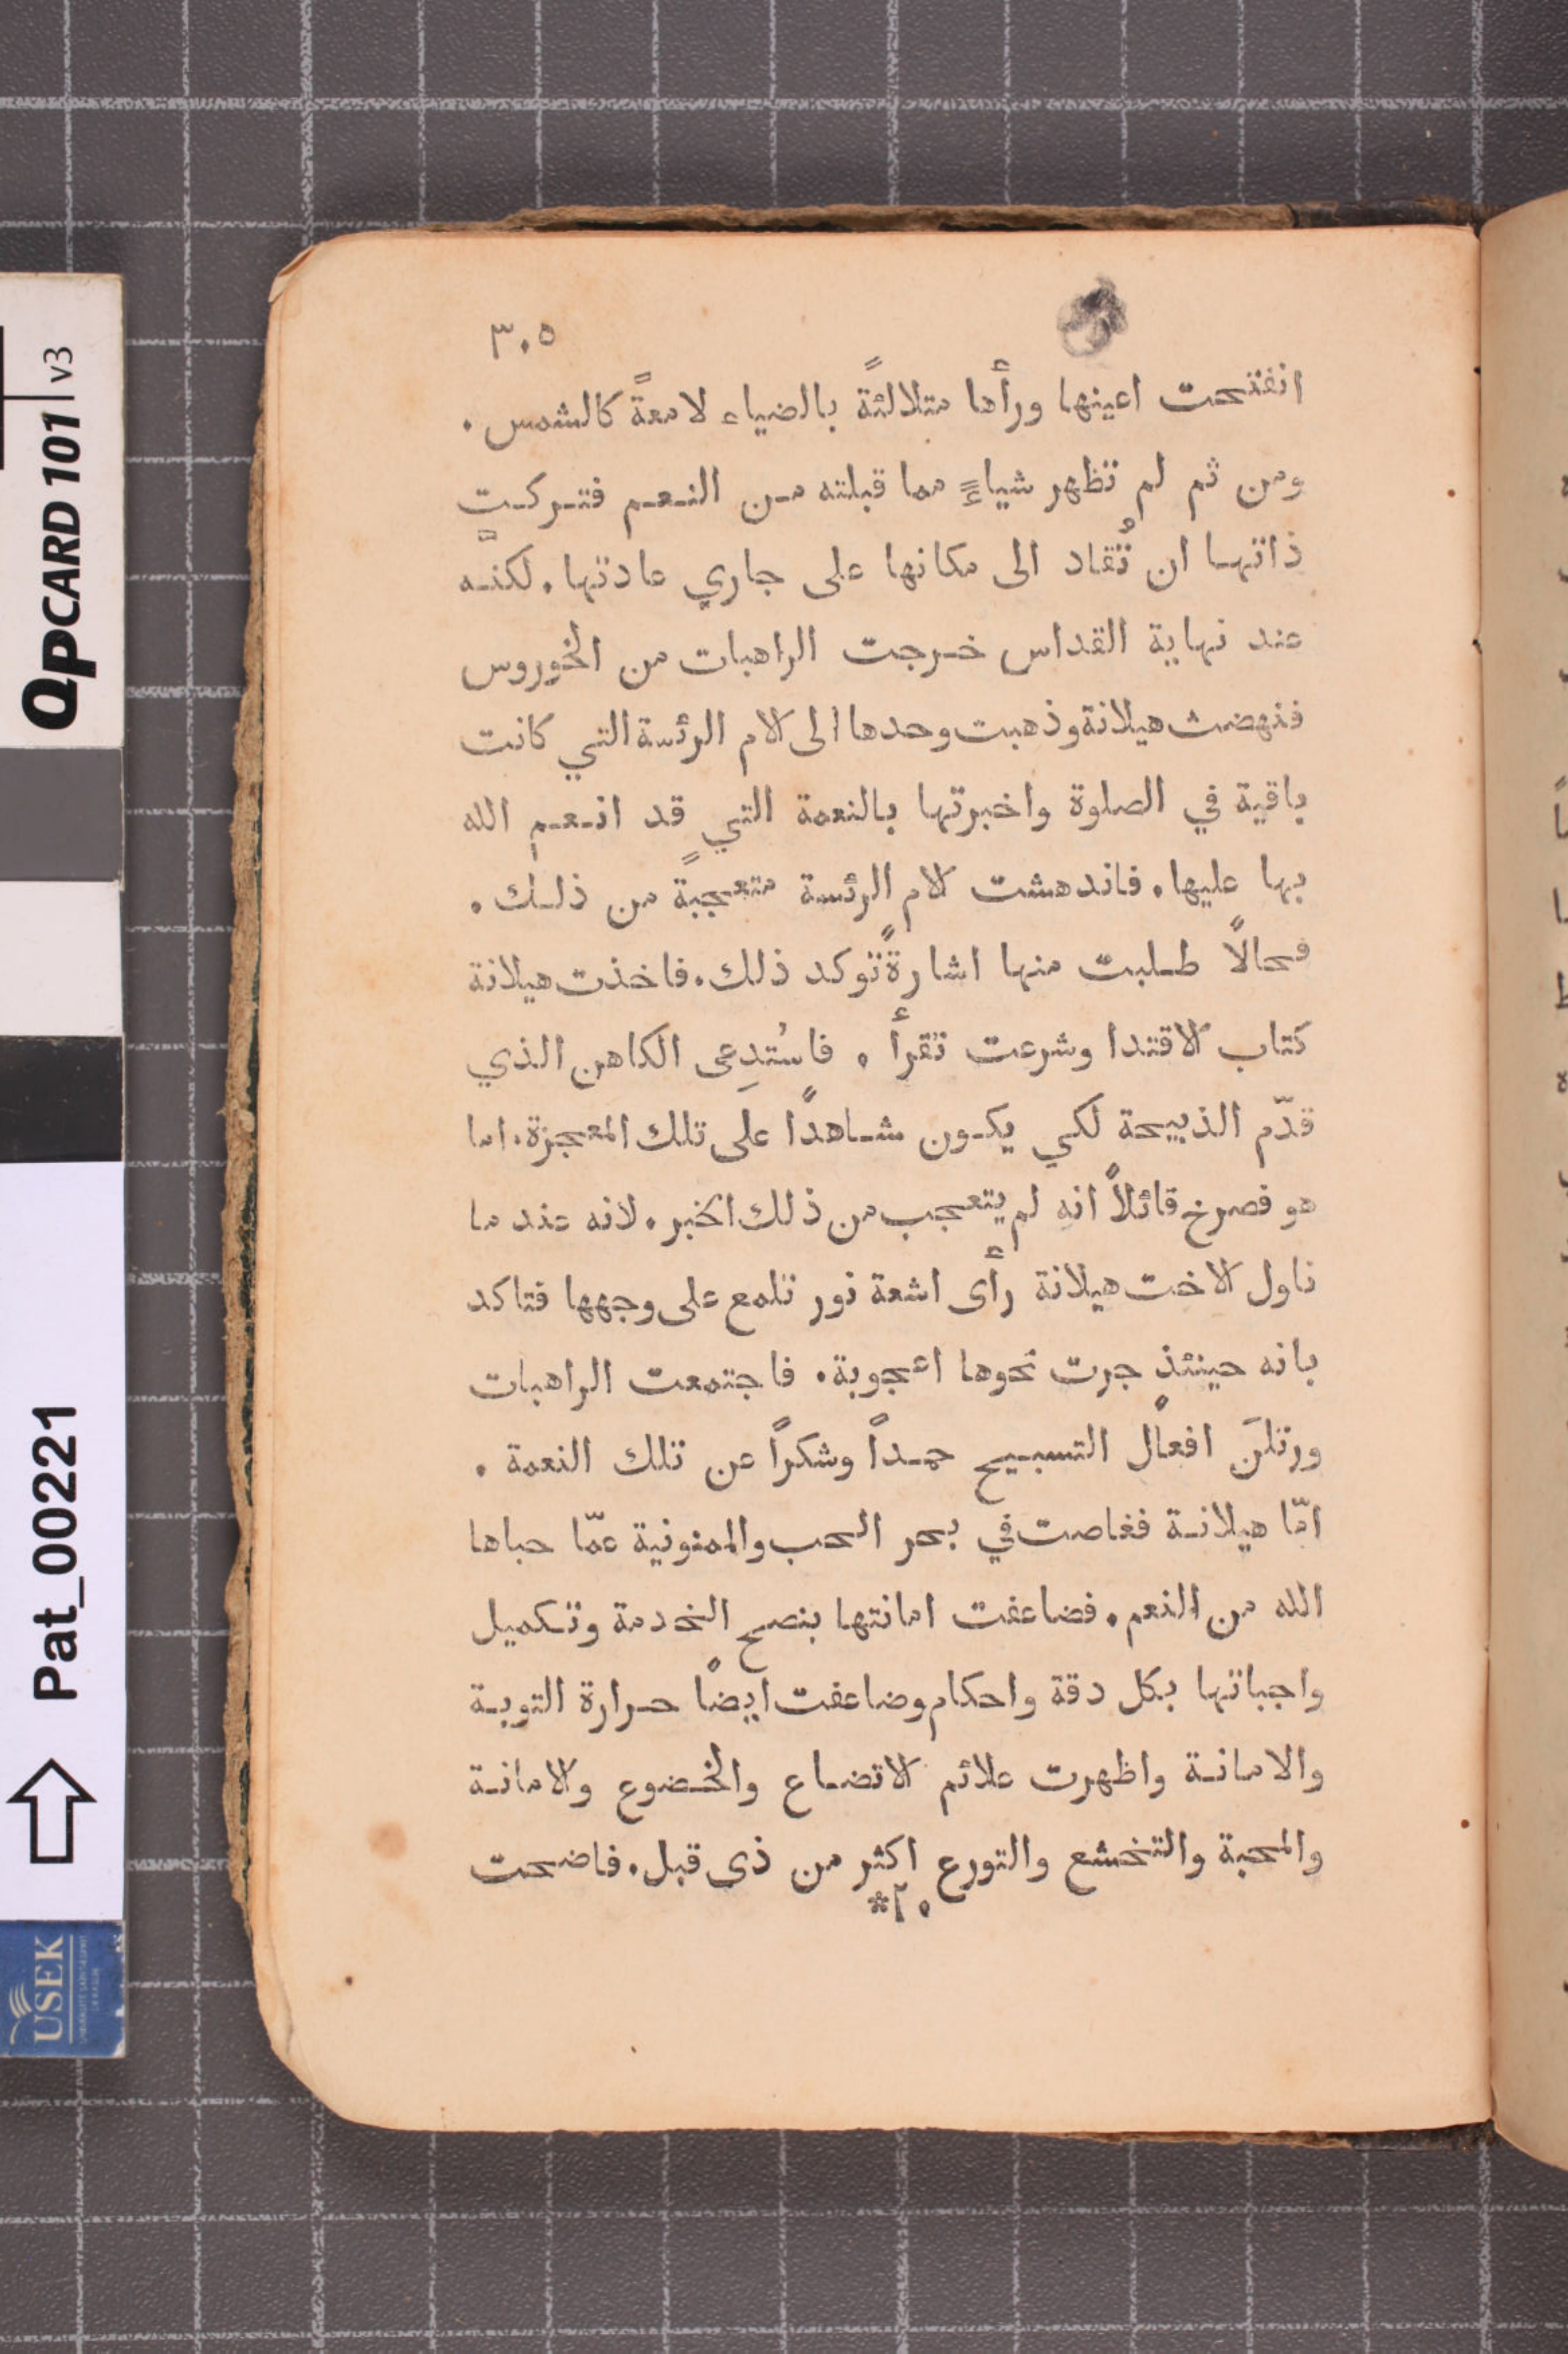 ٣٠٥
انفتحت اعينها ورأها متلالئةً بالضياء لامعةً كالشمس .
ومن ثم لم تظهر شياءً مما قبلته من النعم فتركت
ذاتها ان تُقاد الى مكانها على جاري عادتها . لكنّه
عند نهاية القداس خرجت الراهبات من الخوروس
فنهضت هيلانة وذهبت وحدها الى الام الرئسة التي كانت
باقية في الصلوة واخبرتها بالنعمة التي قد انعم الله
بها عليها . فاندهشت الام الرئسة متعجبةً من ذلك .
فحالًا طلبت منها اشارةً توكد ذلك . فاخذت هيلانة
كتاب الاقتدا وشرعت تقرأ . فاستُدِعى الكاهن الذي
قدّم الذبيحة لكي يكون شاهدًا على تلك المعجزة . اما
هو فصرخ قائلاً انه لم يتعجب من ذلك الخبر . لانه عند ما
ناول الاخت هيلانة رأى اشعة نور تلمع على وجهها فتاكد
بانه حينئذٍ جرت نحوها اعجوبة . فاجتمعت الراهبات
ورتلنَ افعال التسبيح حمداً وشكراً عن تلك النعمة .
امّا هيلانة فغاصت في بحر الحب والممنونية عمّا حباها
الله من النعم . فضاعفت امانتها بنصح الخدمة وتكميل
واجباتها بكل دقة واحكام وضاعفت ايضًا حرارة التوبة
والامانة واظهرت علائم الاتضاع والخضوع والامانة
والمحبة والتخشع والتورع اكثر من ذى قبل . فاضحت
*٢٠
QPCARD 101 v3
Pat_00221
USEK